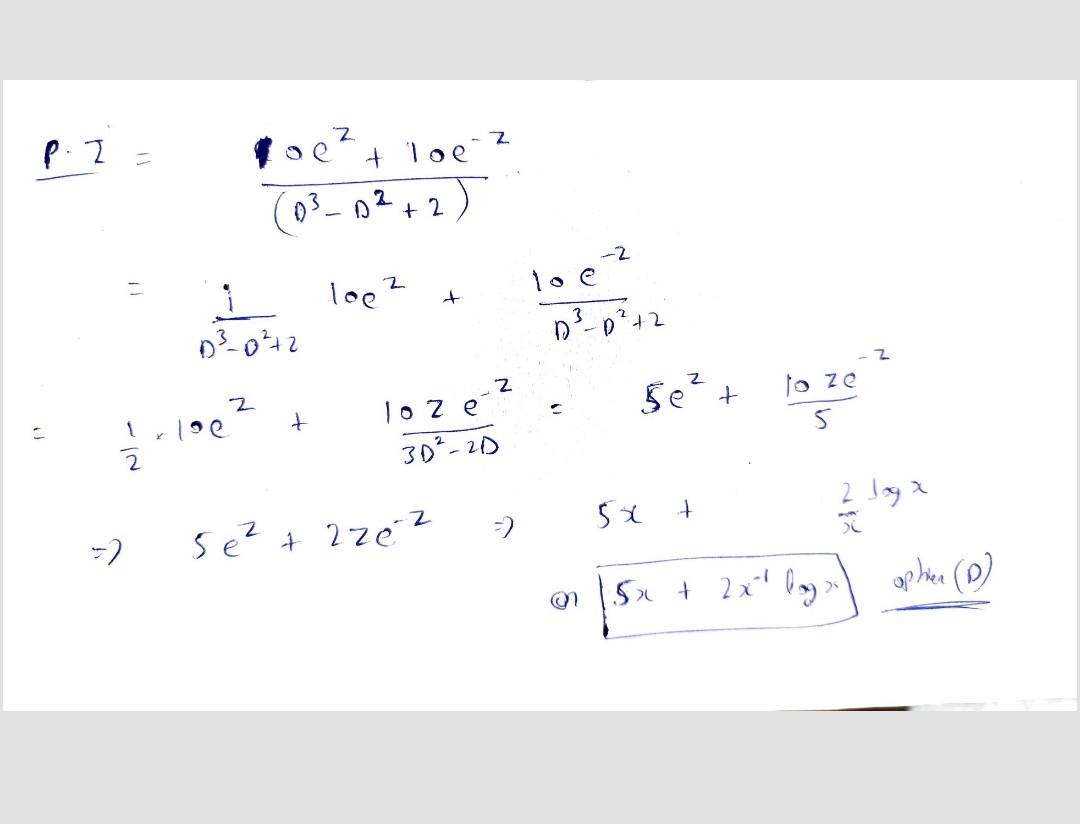 P.I = 10e^z + 10e^-z / (D^3 - D^2 + 2)
= 1/(D^3 - D^2 + 2) 10e^z + 10e^-z/(D^3 - D^2 + 2)
= 1/2 × 10e^z + 10ze^-z/(3D^2 - 2D) = 5e^z + 10ze^-z/5
=> 5e^z + 2ze^-z => 5x + 2/x log x
or 5x + 2x^-1 log x option (D)